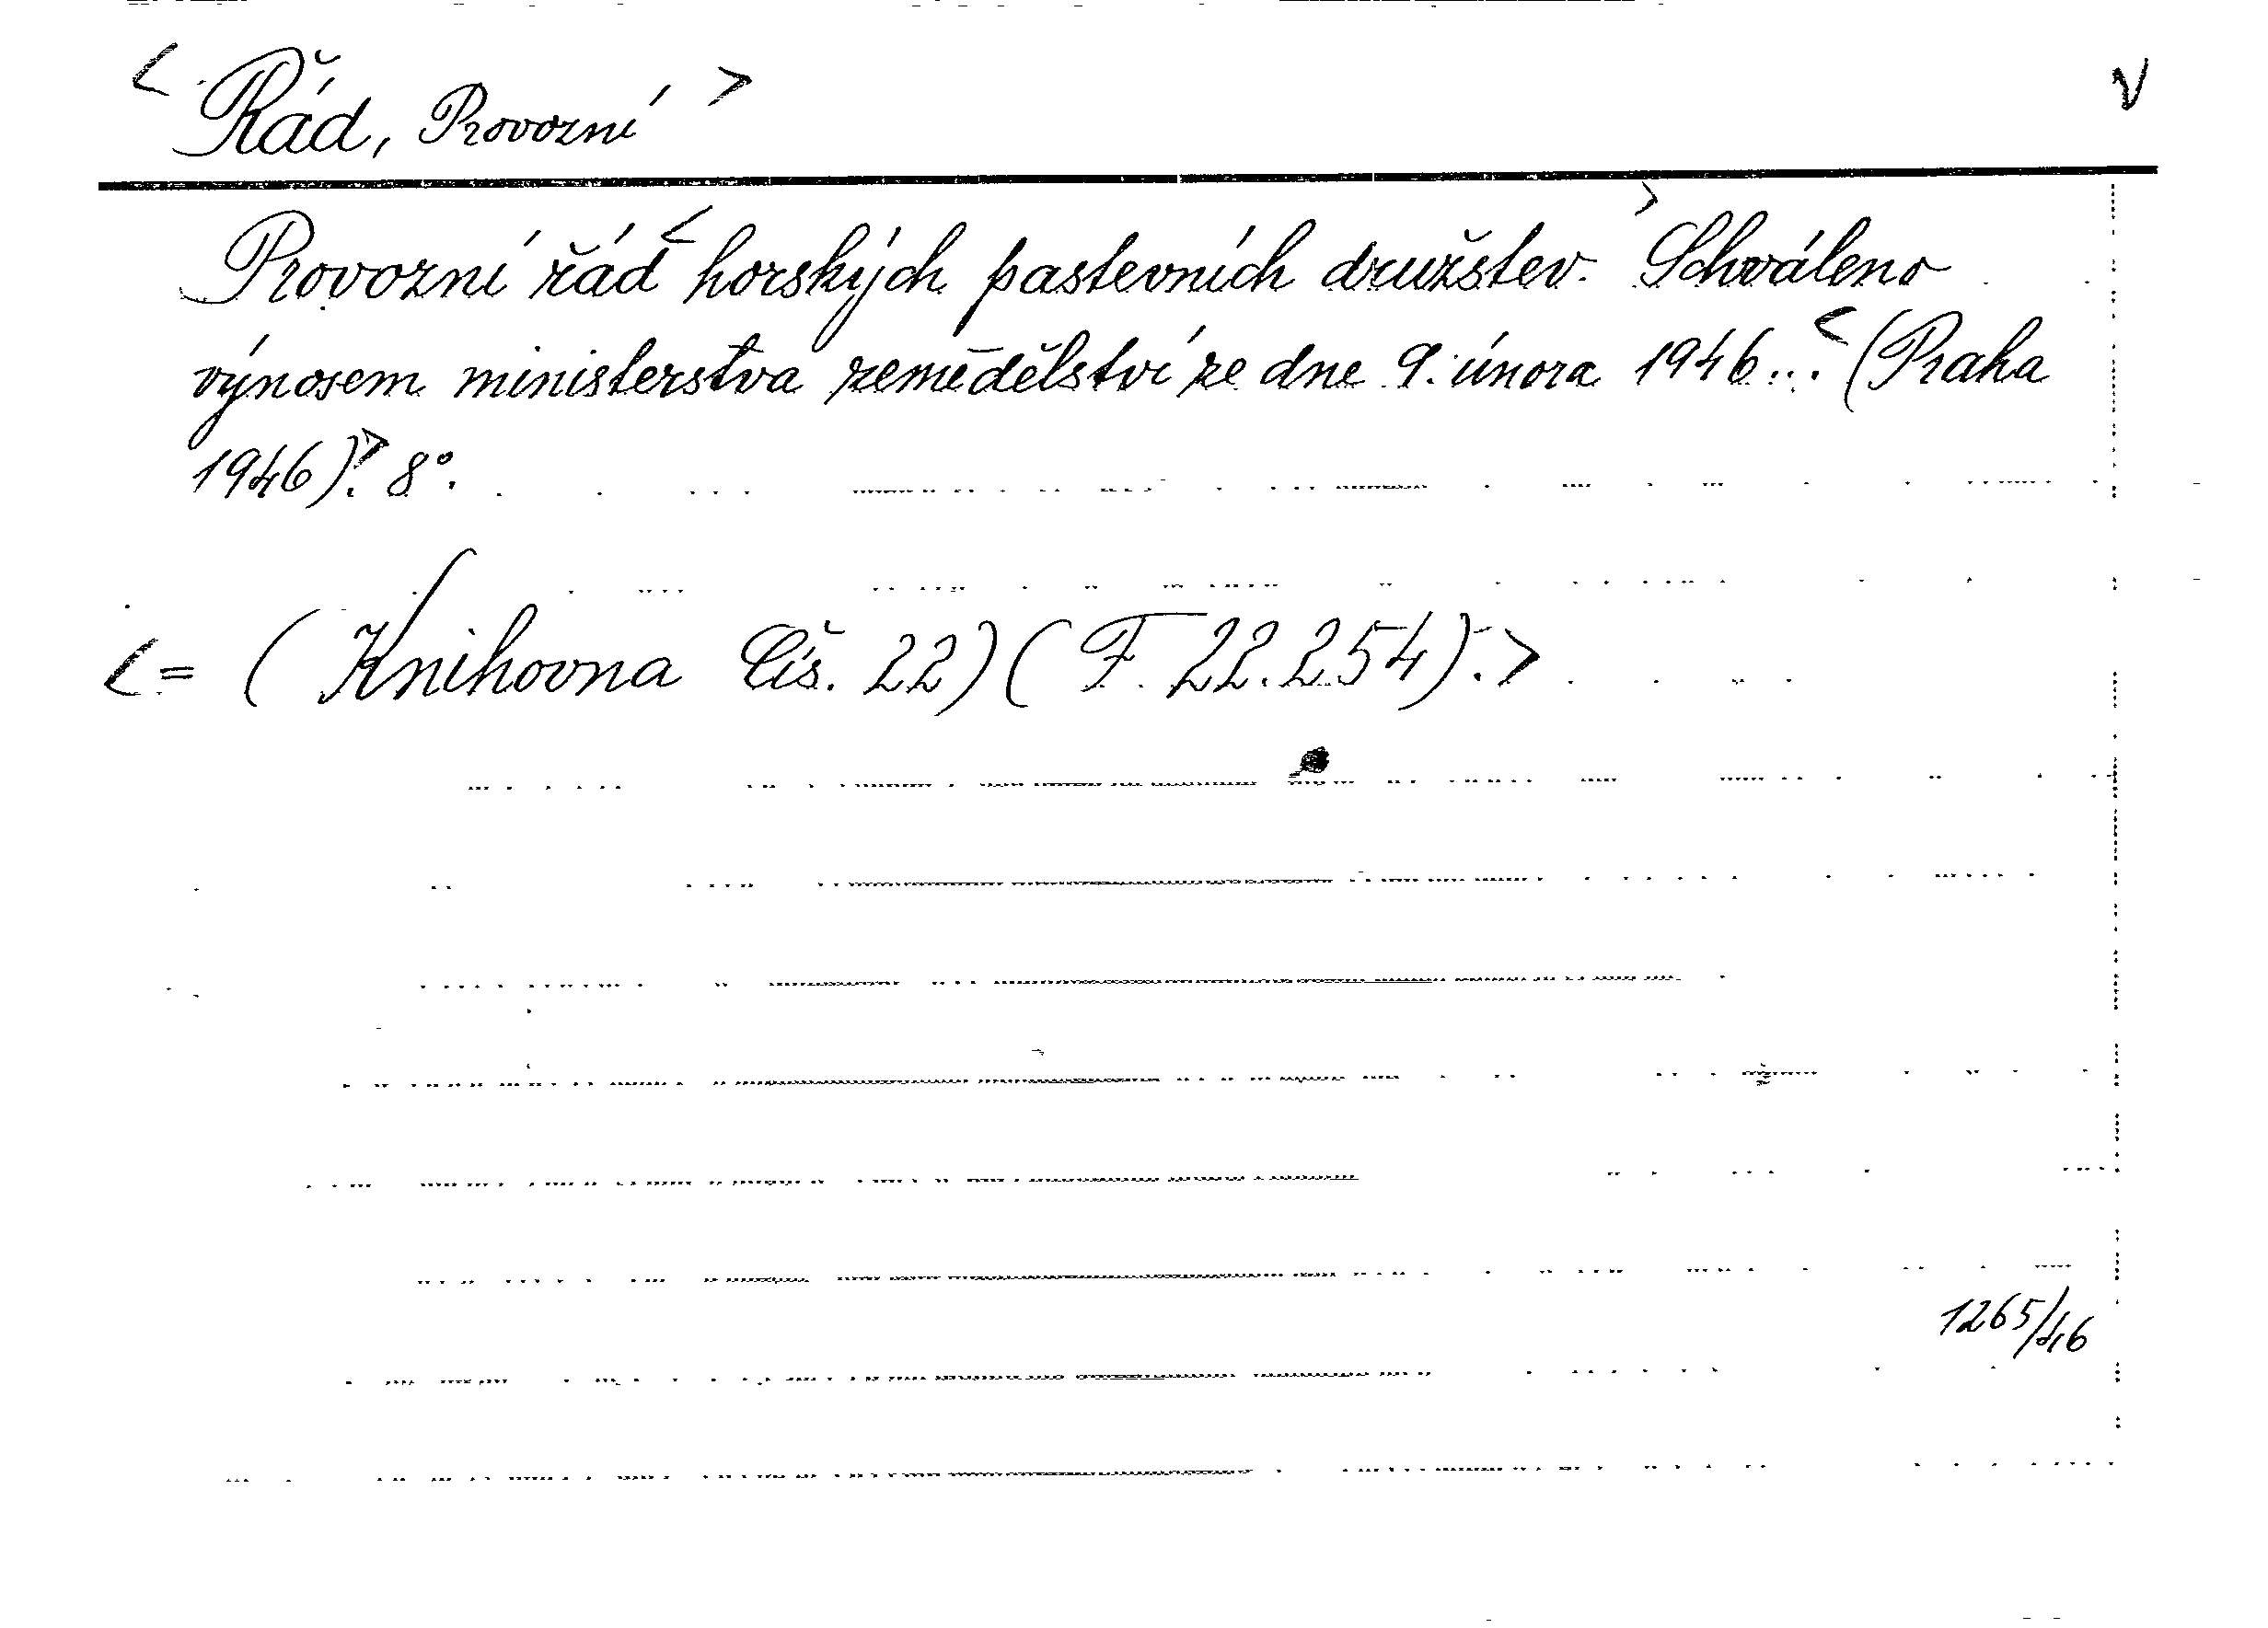 < Řád, Provozní > V
Provozní řád < horských pastevních družstev. > Schváleno
výnosem ministerstva zemědělství ze dne 9. února 1946... < (Praha
1946). > 8°.
< = (Knihovna Čís. 22) (F. 22.254). >
1265/46